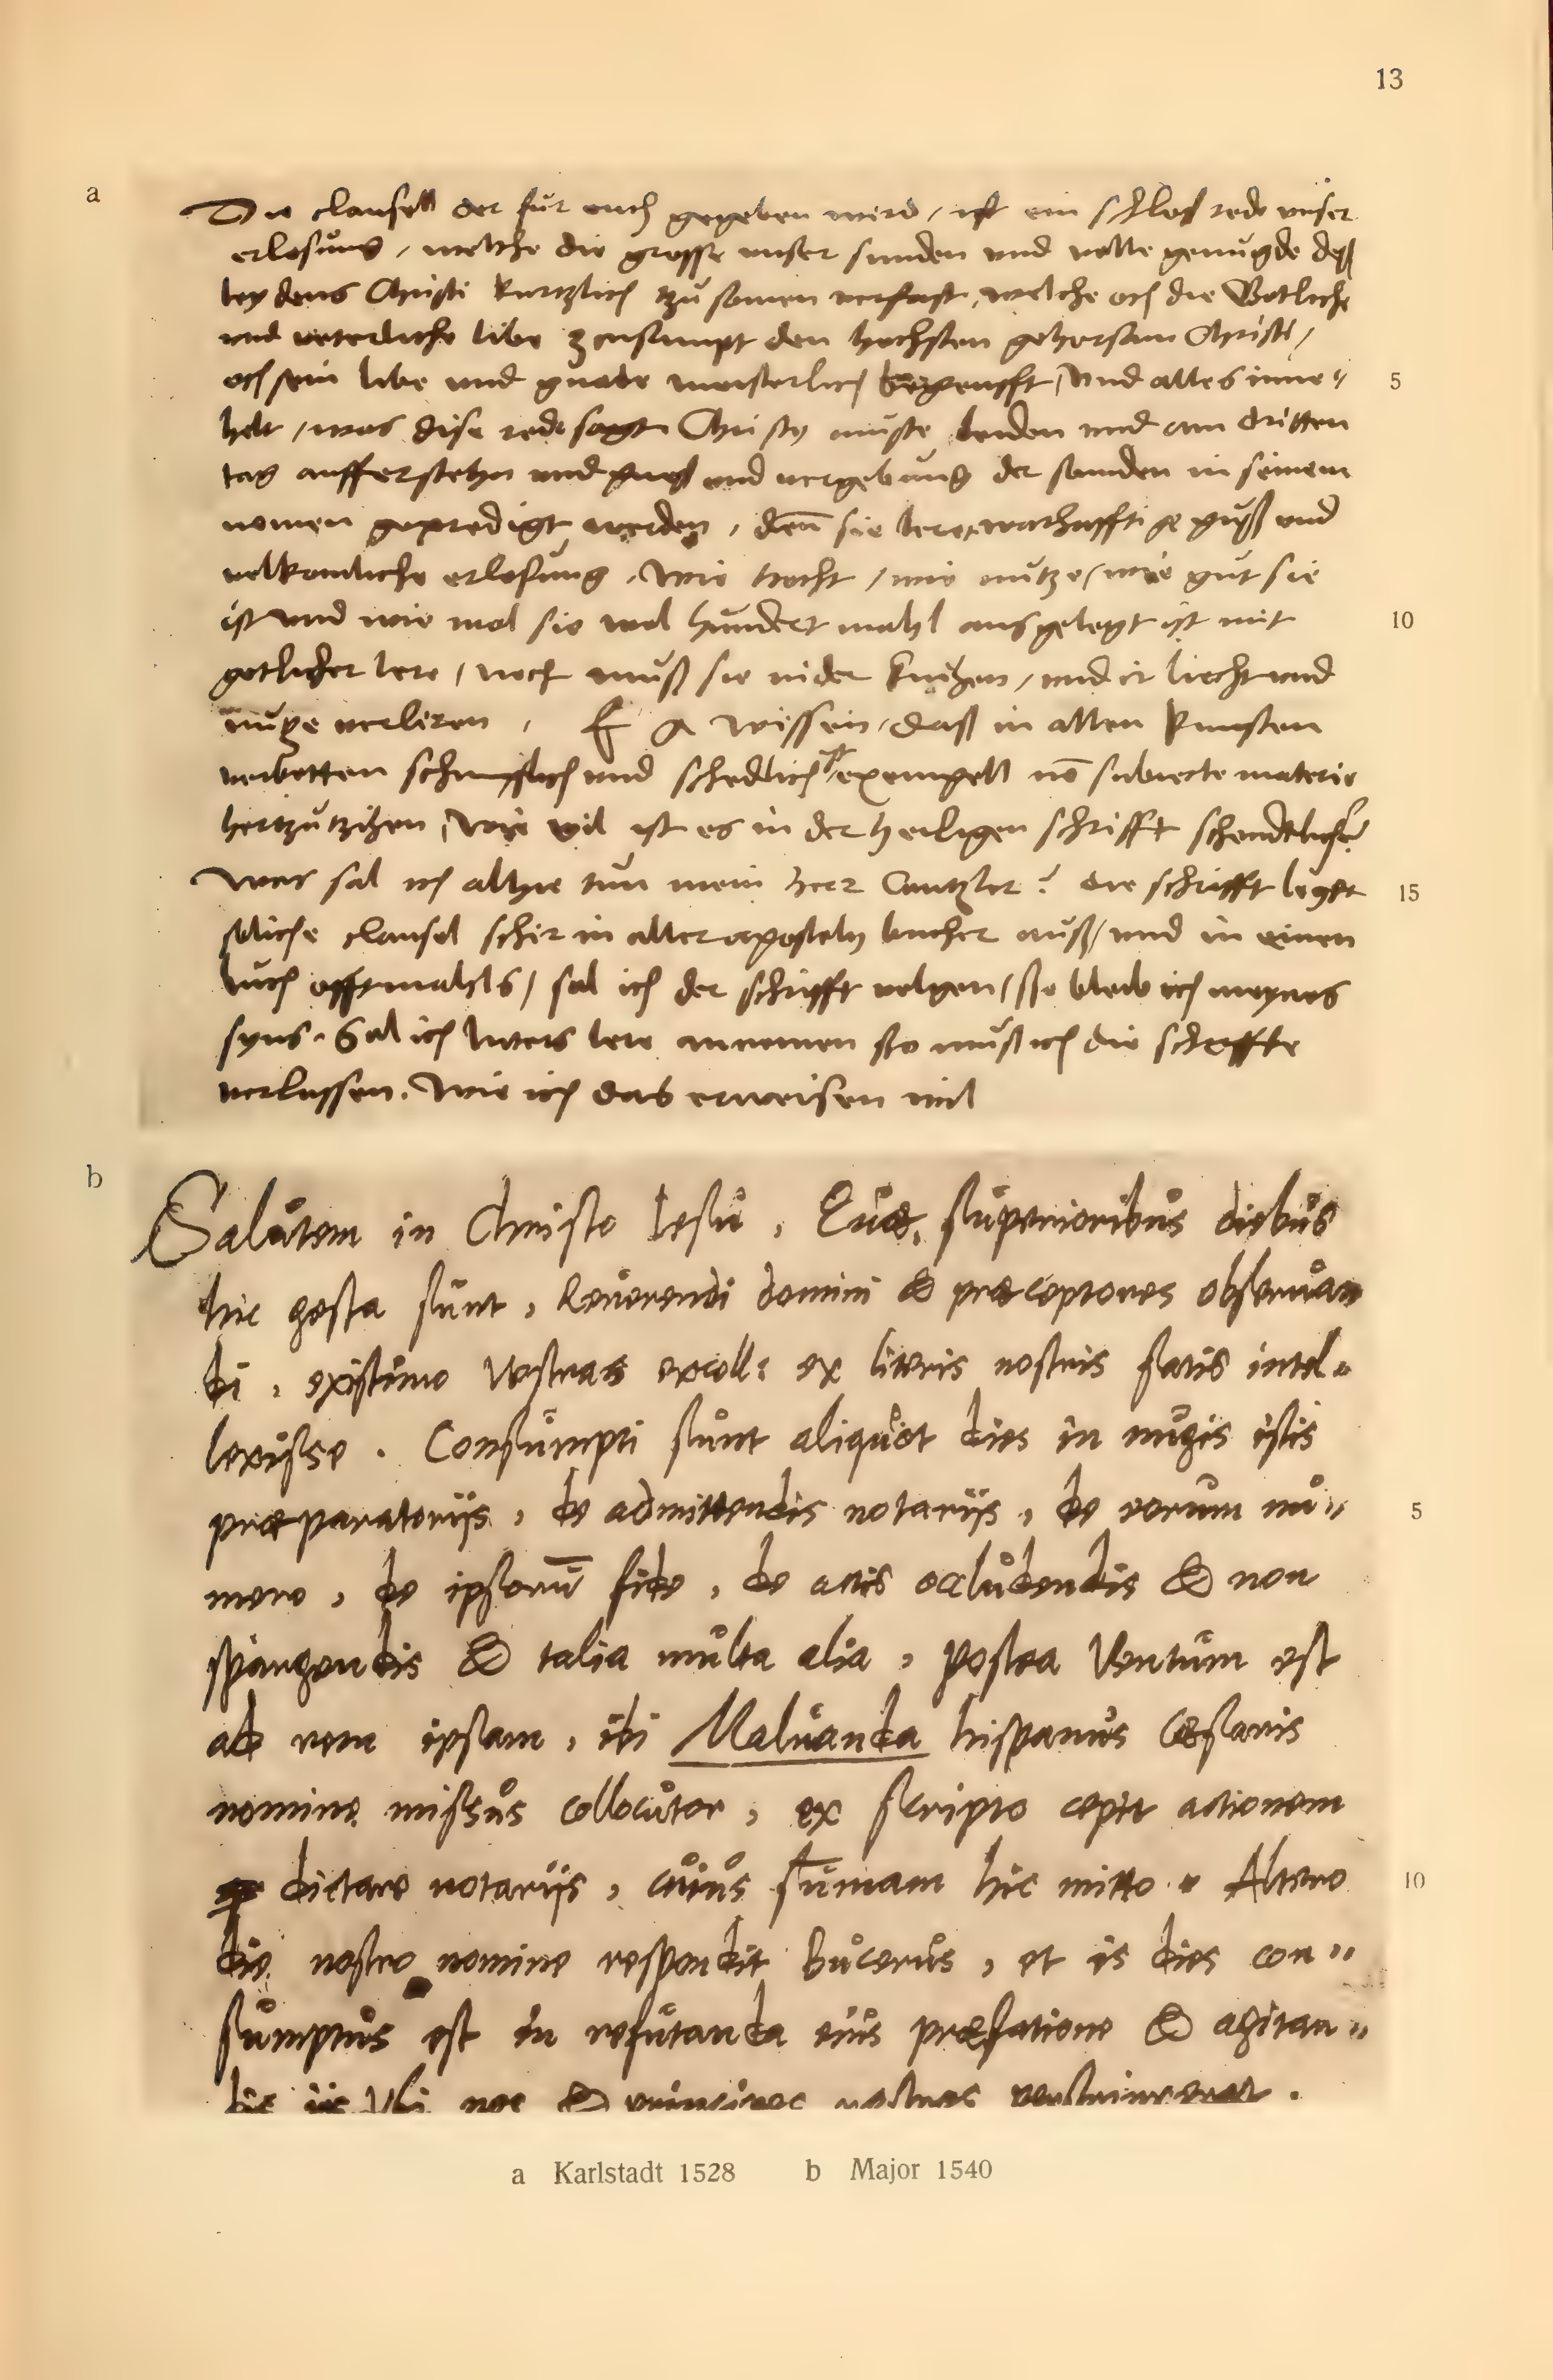 13
a
Die clausell der fur euch gegeben wird / ist ein schlos rede unser
erlosung / welche die grosse unser sunden und volle genugde deß
leydens Christi kurtzlich tzu samen verfast, welche och die Gotliche
und veterliche libe zcusampt den hochsten gehorsam Christi /
och sein libe und gnade meisterlich begreufft, und alles inne〃
5
helt / was dise rede sagt Christus muste leiden und am dritten
tag aufferstehn und und vergebung der sunden in seinem
nomen gepredigt werden, denn sie leret warhafftige und
volkomliche erlosung. Wie hocht / wie nutze / wie gut sie
ist und wie wol sie wol hundert mahl ausgelegt ist mit
10
gotlicher lere / noch muß sie nider knihen / und ir liecht und
nutze verliren, E G wissen, daß in allen kunsten
verbotten schimpflich und schedlich ist, exempell no subiecte materie
hertzutzihen, wie vil ist es in der heiligen schrifft schendtlicher?
Was sal ich alhye tun mein herr Cantzler? die schrifft leget
15
soliche clausel schir in aller aposteln bucher auß / und in einen
buch offtmahls / sal ich der schrifft volgen / sso bleib ich meynes
syns. Sal ich luters lere annemen sso muß ich die schriffte
verlassen. Wie ich das erweisen wil
b
Salutem in Christo Iesu, Quæ superioribus diebus
hic gesta sunt, Reuerendi domini & præceptores obseruan
di, existimo Vestras excell: ex literis nostris satis intel〃
lexisse. Consumpti sunt aliquot dies in nugis istis
præparatorijs, de admittendis notarijs, de eorum nu〃
5
mero, de ipsorū fide, de actis occludendis & non
spargendis & talia multa alia, postea Ventum est
ad rem ipsam, ibi Maluanda hispanus Cæsaris
nomine missus collocutor, ex scripto cepit actionem
dictare notarijs, cuius sumam hic mitto. Altero
10
die nostro nomine respondit Bucerus, et is dies con〃
sumptus est in refutanda eius præfatione & agitan〃
dis iis Vbi nos & principes nostros perstrinxerat.
a Karlstadt 1528 b Major 1540